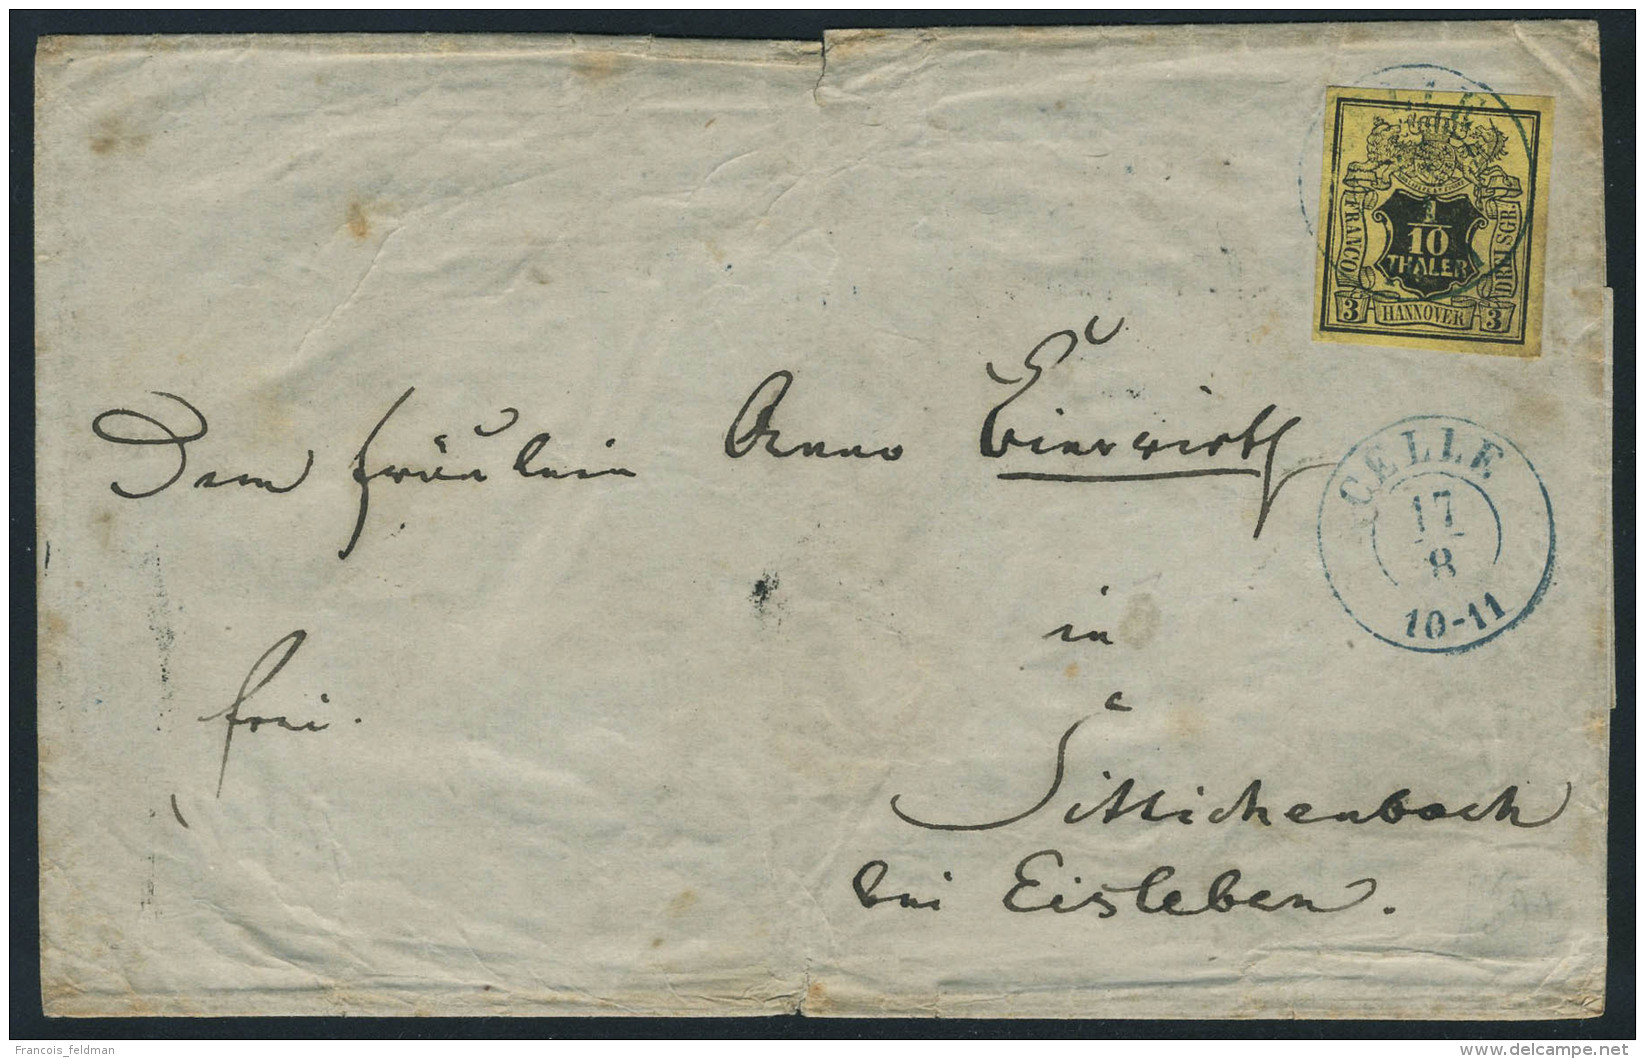 CELLE
FRANCO
1/10
THALER
DREI SGR.
3 HANNOVER 3
Dem Fräulein Anna
CELLE
17
8
10-11
in
frei.
Sittichenbach
bei Eisleben.
Francois_feldman
www.delcampe.net